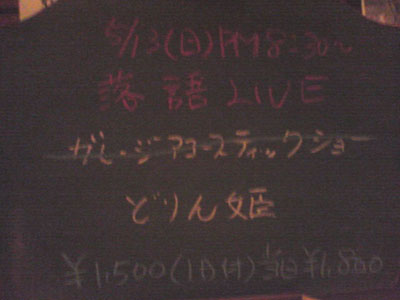 5/13(日)PM8:30〜
落語LIVE
ガレージアコースティックショー
どりん姫
¥1,500(1D付)当日¥1,800